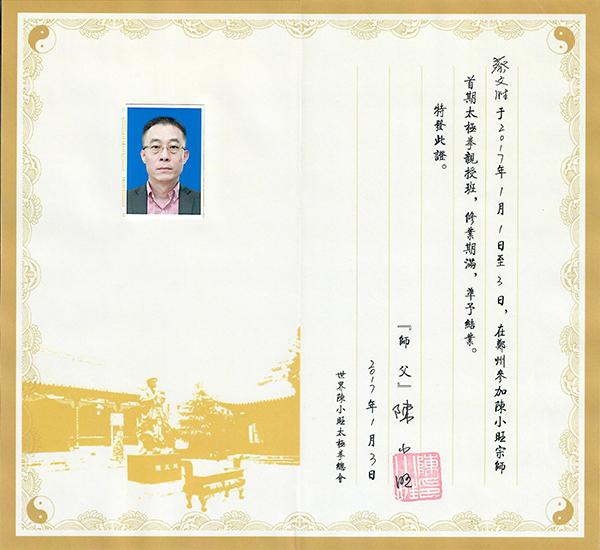 蔡文胜于2017年1月1日至3日，在鄭州參加陳小旺宗師
首期太極拳親授班，修業期滿，準予結業。
特發此證。
『師父』陳小旺
2017年1月3日
世界陳小旺太極拳總會